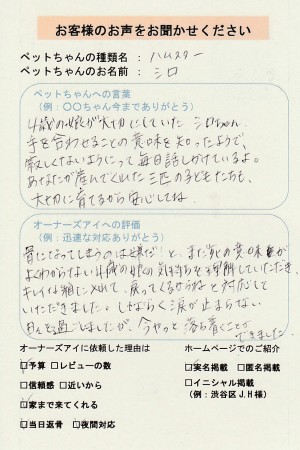 お客様のお声をお聞かせください
ペットちゃんの種類名：ハムスター
ペットちゃんのお名前：シロ
ペットちゃんへの言葉
（例：〇〇ちゃん今までありがとう）
4歳の娘が大切にしていたシロちゃん。
手を合わせることの意味を知ったようで、
寂しくないようにって毎日話しかけているよ。
あなたが産んでくれた三匹の子どもたちも、
大切に育てるから安心してね
オーナーズアイへの評価
（例：迅速な対応ありがとう）
骨になってしまうのは嫌だ！と、まだ死の意味が
よくわからない4歳の娘の気持ちを理解していただき、
キレイな箱に入れて、戻ってくるからねと対応して
いただきました。しばらく涙が止まらない
日々を過ごしましたが、今やっと落ち着くことが
できました。
オーナーズアイに依頼した理由は
ホームページでのご紹介
□予算 □レビューの数
□実名掲載 □匿名掲載
□信頼感 □近いから
□イニシャル掲載
□家まで来てくれる
（例：渋谷区 J.H 様）
□当日返骨 □夜間対応